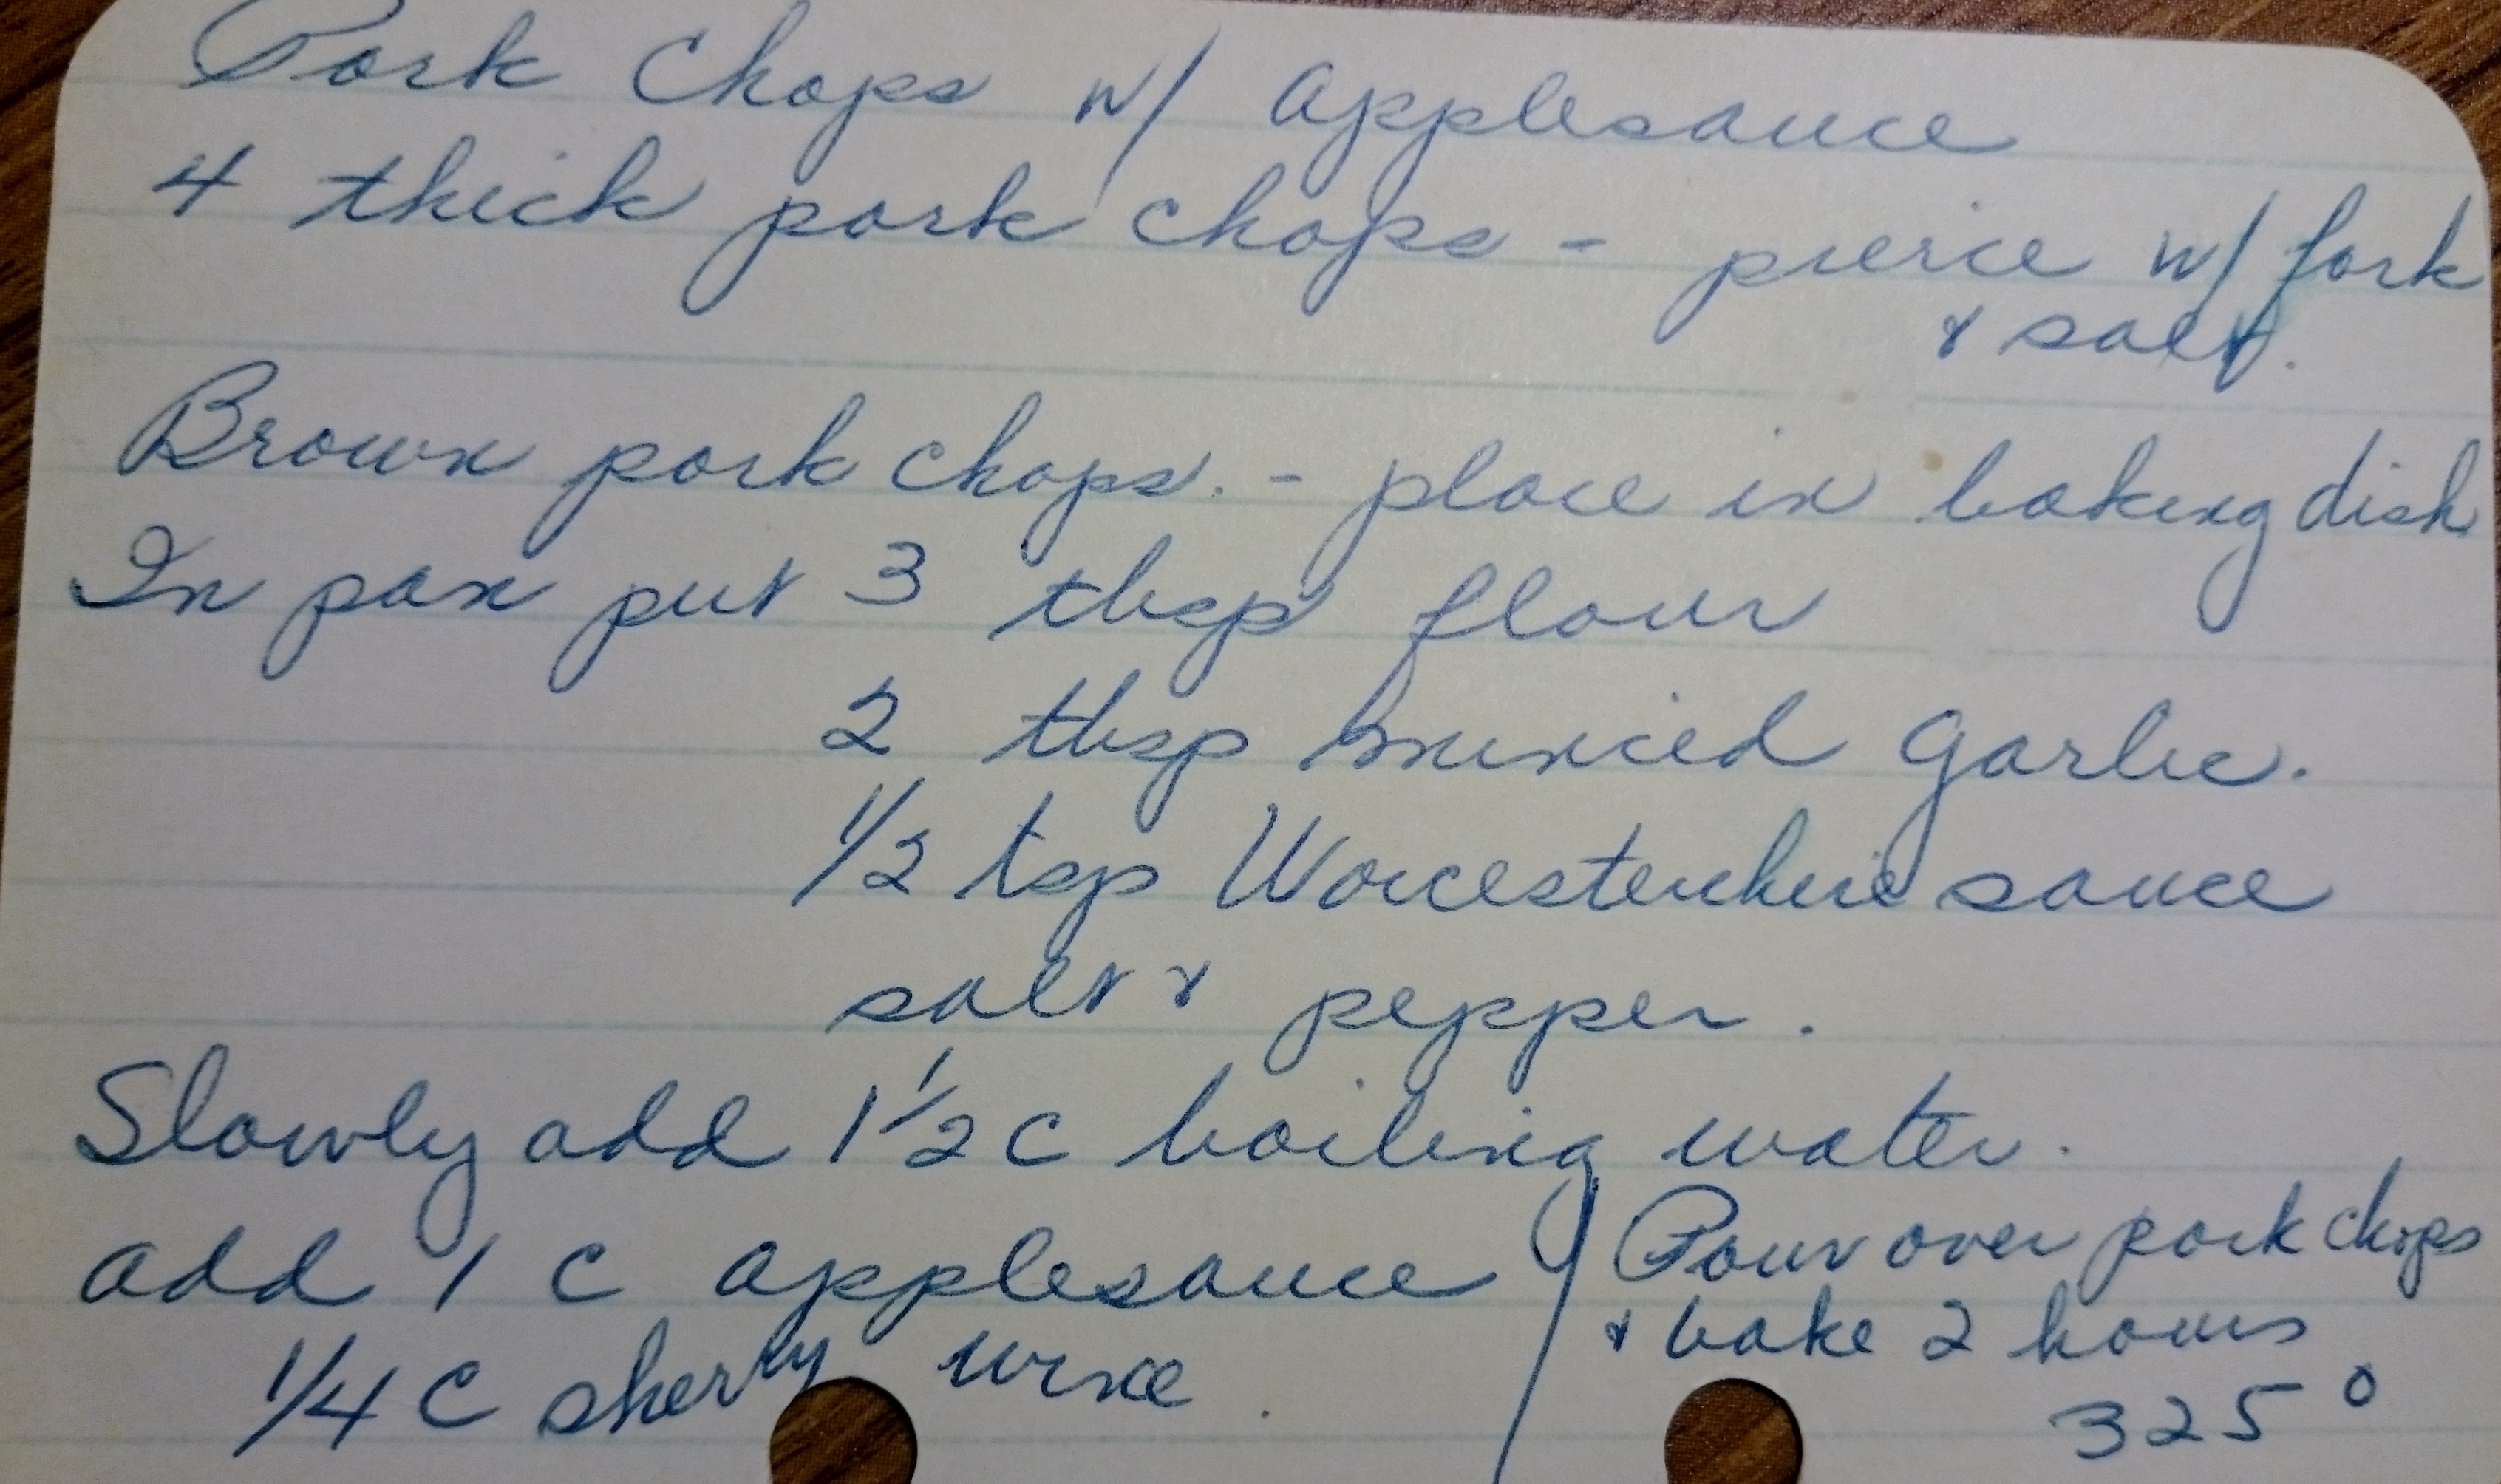 Pork Chops w/ applesauce
4 thick pork chops - pierce w/ fork
& salt.
Brown pork chops. - place in baking dish
In pan put 3 tbsp flour
2 tbsp minced garlic.
1/2 tsp Worcestershire sauce
salt & pepper.
Slowly add 1 1/2 c boiling water.
add 1 c applesauce
1/4 c sherry wine.
Pour over pork chops
& bake 2 hours
325°